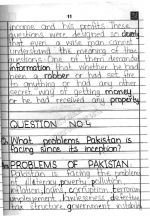 11
income and his profits. These
questions were designed so
that even a wise man cannot
understand the meaning of the
questions. One of them demanded
information that whether he had
been a robber or had set fire
to anything or had any other
secret way of getting money
or he had received any property
QUESTION NO 4
Q. What problems Pakistan is
facing since its inception?
PROBLEMS OF PAKISTAN
Pakistan is facing the problems
of illiteracy, poverty, pollution,
inflation, loans, corruption, terrorism
unemployement, lawlessness, defective
tax structure, government